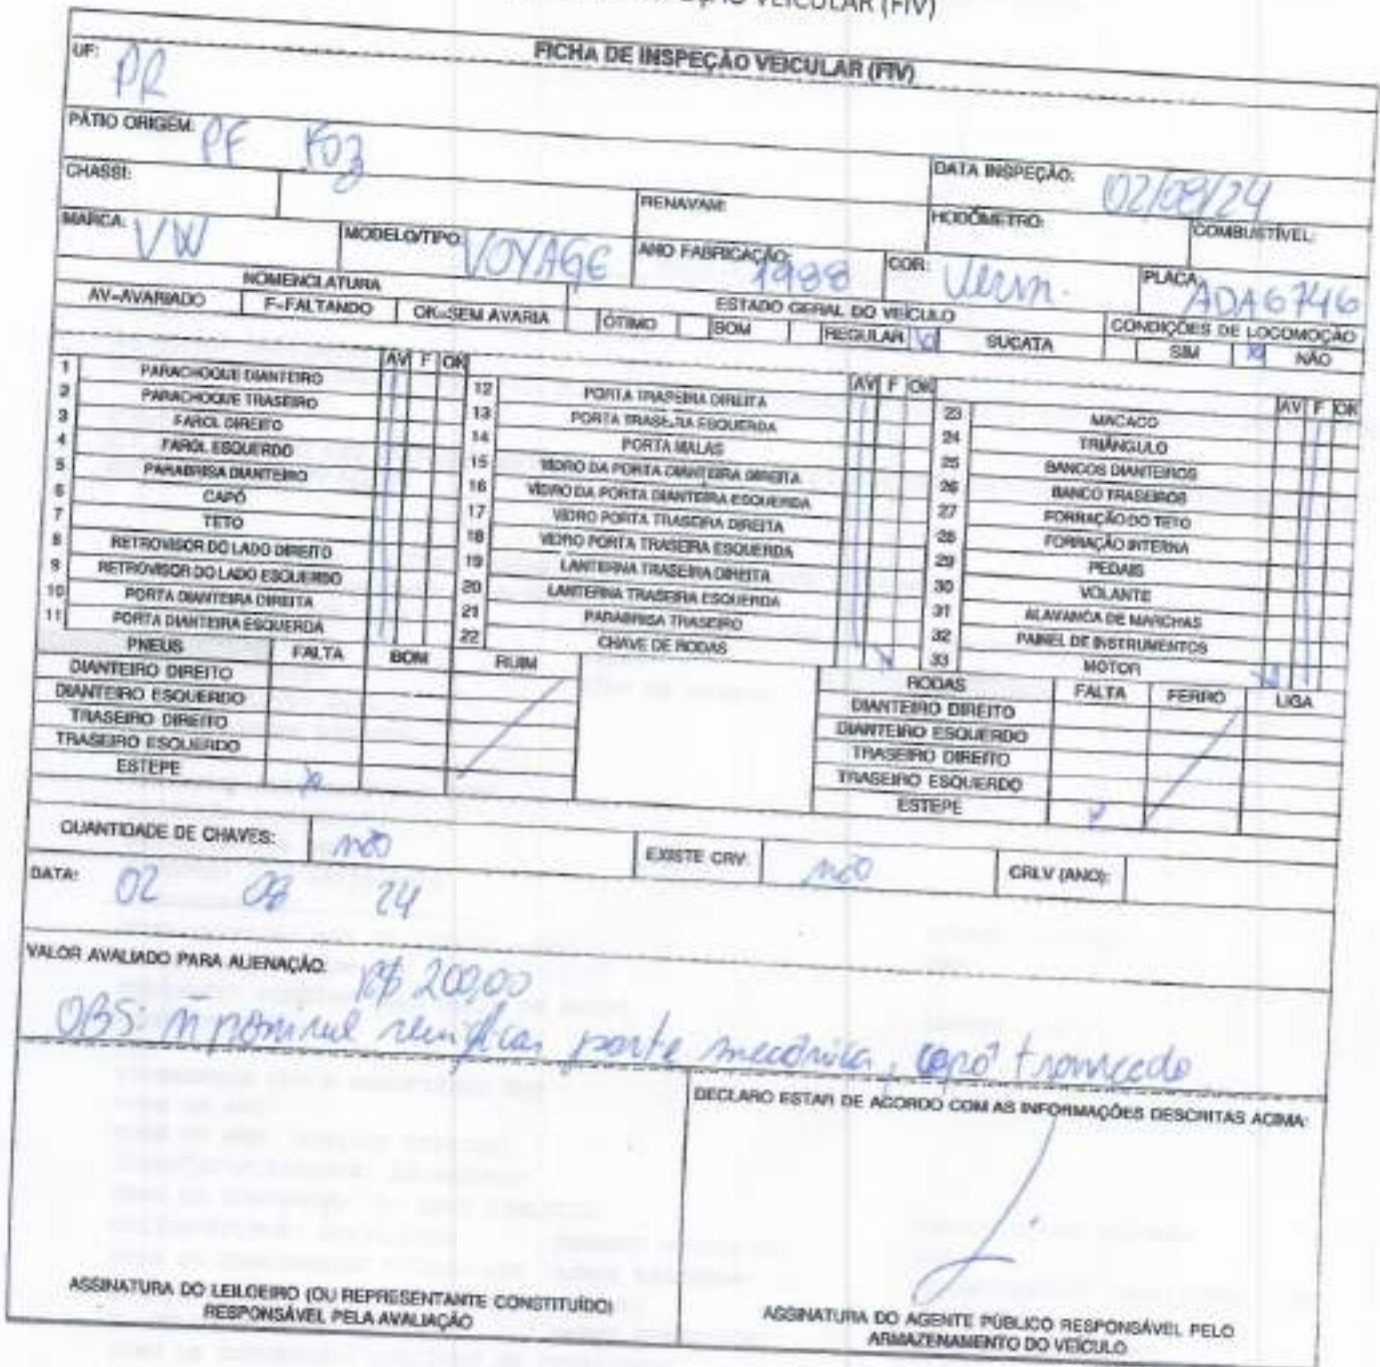 VEICULAR (FIV)
FICHA DE INSPEÇÃO VEICULAR (FIV)
UF: PR
PÁTIO ORIGEM: PF Foz
DATA INSPEÇÃO: 02/08/24
CHASSI:
RENAVAM:
HODÔMETRO:
COMBUSTÍVEL:
MARCA: VW
MODELO/TIPO: VOYAGE
ANO FABRICAÇÃO: 1988
COR: Verm.
PLACA: ADA6746
NOMENCLATURA
ESTADO GERAL DO VEÍCULO
CONDIÇÕES DE LOCOMOÇÃO
AV=AVARIADO F=FALTANDO OK=SEM AVARIA ÓTIMO BOM REGULAR SUCATA SIM NÃO
AV F OK
1 PARACHOQUE DIANTEIRO
2 PARACHOQUE TRASEIRO
3 FAROL DIREITO
4 FAROL ESQUERDO
5 PARABRISA DIANTEIRO
6 CAPÔ
7 TETO
8 RETROVISOR DO LADO DIREITO
9 RETROVISOR DO LADO ESQUERDO
10 PORTA DIANTEIRA DIREITA
11 PORTA DIANTEIRA ESQUERDA
AV F OK
12 PORTA TRASEIRA DIREITA
13 PORTA TRASEIRA ESQUERDA
14 PORTA MALAS
15 VIDRO DA PORTA DIANTEIRA DIREITA
16 VIDRO DA PORTA DIANTEIRA ESQUERDA
17 VIDRO PORTA TRASEIRA DIREITA
18 VIDRO PORTA TRASEIRA ESQUERDA
19 LANTERNA TRASEIRA DIREITA
20 LANTERNA TRASEIRA ESQUERDA
21 PARABRISA TRASEIRO
22 CHAVE DE RODAS
AV F OK
23 MACACO
24 TRIÂNGULO
25 BANCOS DIANTEIROS
26 BANCO TRASEIROS
27 FORRAÇÃO DO TETO
28 FORRAÇÃO INTERNA
29 PEDAIS
30 VOLANTE
31 ALAVANCA DE MARCHAS
32 PAINEL DE INSTRUMENTOS
33 MOTOR
PNEUS FALTA BOM RUIM
DIANTEIRO DIREITO
DIANTEIRO ESQUERDO
TRASEIRO DIREITO
TRASEIRO ESQUERDO
ESTEPE x
RODAS FALTA FERRO LIGA
DIANTEIRO DIREITO
DIANTEIRO ESQUERDO
TRASEIRO DIREITO
TRASEIRO ESQUERDO
ESTEPE x
QUANTIDADE DE CHAVES: não EXISTE CRV: não CRLV (ANO):
DATA: 02 08 24
VALOR AVALIADO PARA ALIENAÇÃO: R$ 200,00
OBS: parte mecânica, capô trancado
DECLARO ESTAR DE ACORDO COM AS INFORMAÇÕES DESCRITAS ACIMA:
ASSINATURA DO LEILOEIRO (OU REPRESENTANTE CONSTITUÍDO)
RESPONSÁVEL PELA AVALIAÇÃO
ASSINATURA DO AGENTE PÚBLICO RESPONSÁVEL PELO
ARMAZENAMENTO DO VEÍCULO